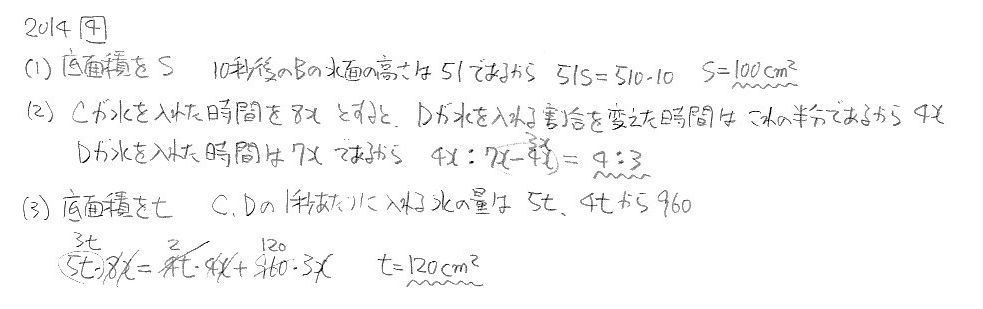 2014 4
(1) 底面積をS 10秒後のBの水面の高さは51であるから 51S=510・10 S=100cm²
(2) Cが水を入れた時間を8xとすると、Dが水を入れる割合を変えた時間はこれの半分であるから4x
Dが水を入れた時間は7xであるから 4x:7x-4x=4:3
3x
(3) 底面積をt C、Dの1秒あたりに入れる水の量は5t、4tから960
3t 2 120
5t・8x=4t・4x+960・3x t=120cm²